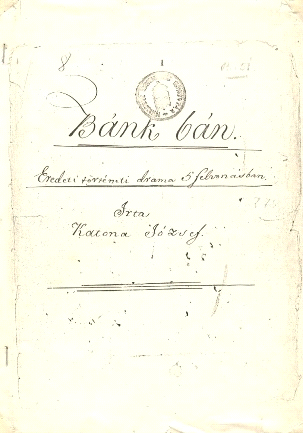 8
Bánk bán.
Eredeti történeti dráma 5 felvonásban.
Irta,
Katona József.